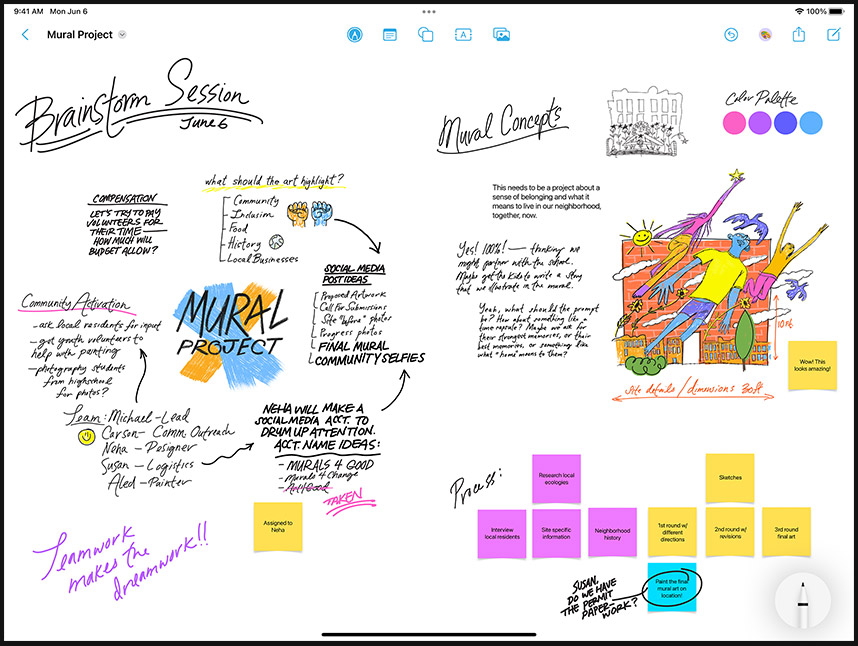 9:41 AM Mon Jun 6
100%
Mural Project
A
Brainstorm Session
June 6
COMPENSATION
LET'S TRY TO PAY
VOLUNTEERS FOR
THEIR TIME —
HOW MUCH WILL
BUDGET ALLOW?
what should the art highlight?
Community
Inclusion
Food
History
Local Businesses
SOCIAL MEDIA
POST IDEAS
Proposed Artwork
Call For Submissions
Site "Before" photos
Progress photos
FINAL MURAL
COMMUNITY SELFIES
Community Activation
- ask local residents for input
- get youth volunteers to
help with painting
- photography students
from highschool
for photos?
MURAL
PROJECT
Team: Michael - Lead
Carson - Comm. Outreach
Neha - Designer
Susan - Logistics
Aled - Painter
NEHA WILL MAKE A
SOCIAL MEDIA ACCT. TO
DRUM UP ATTENTION.
ACCT. NAME IDEAS:
- MURALS 4 GOOD
- Murals 4 Change
- Art 4 Good
TAKEN
Assigned to
Neha
Teamwork
makes the
dreamwork!!
Mural Concepts
Color Palette
This needs to be a project about a
sense of belonging and what it
means to live in our neighborhood,
together, now.
Yes! 100%! — thinking we
might partner with the school.
Maybe get the kids to write a story
that we illustrate in the mural.
Yeah, what should the prompt
be? How about something like a
time capsule? Maybe we ask for
their strongest memories, or their
best memories, or something like
what "home" means to them?
10ft
Site details / dimensions 30ft
Wow! This
looks amazing!
Process:
Research local
ecologies
Sketches
Interview
local residents
Site specific
information
Neighborhood
history
1st round w/
different
directions
2nd round w/
revisions
3rd round
final art
SUSAN,
DO WE HAVE
THE PERMIT
PAPER-
WORK?
Paint the final
mural art on
location!